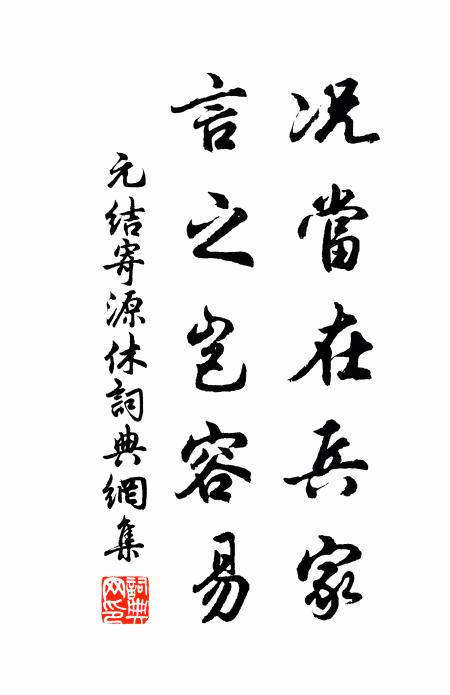 况當在兵家
言之豈容易
元结寄源休詞典網集
詞典網印